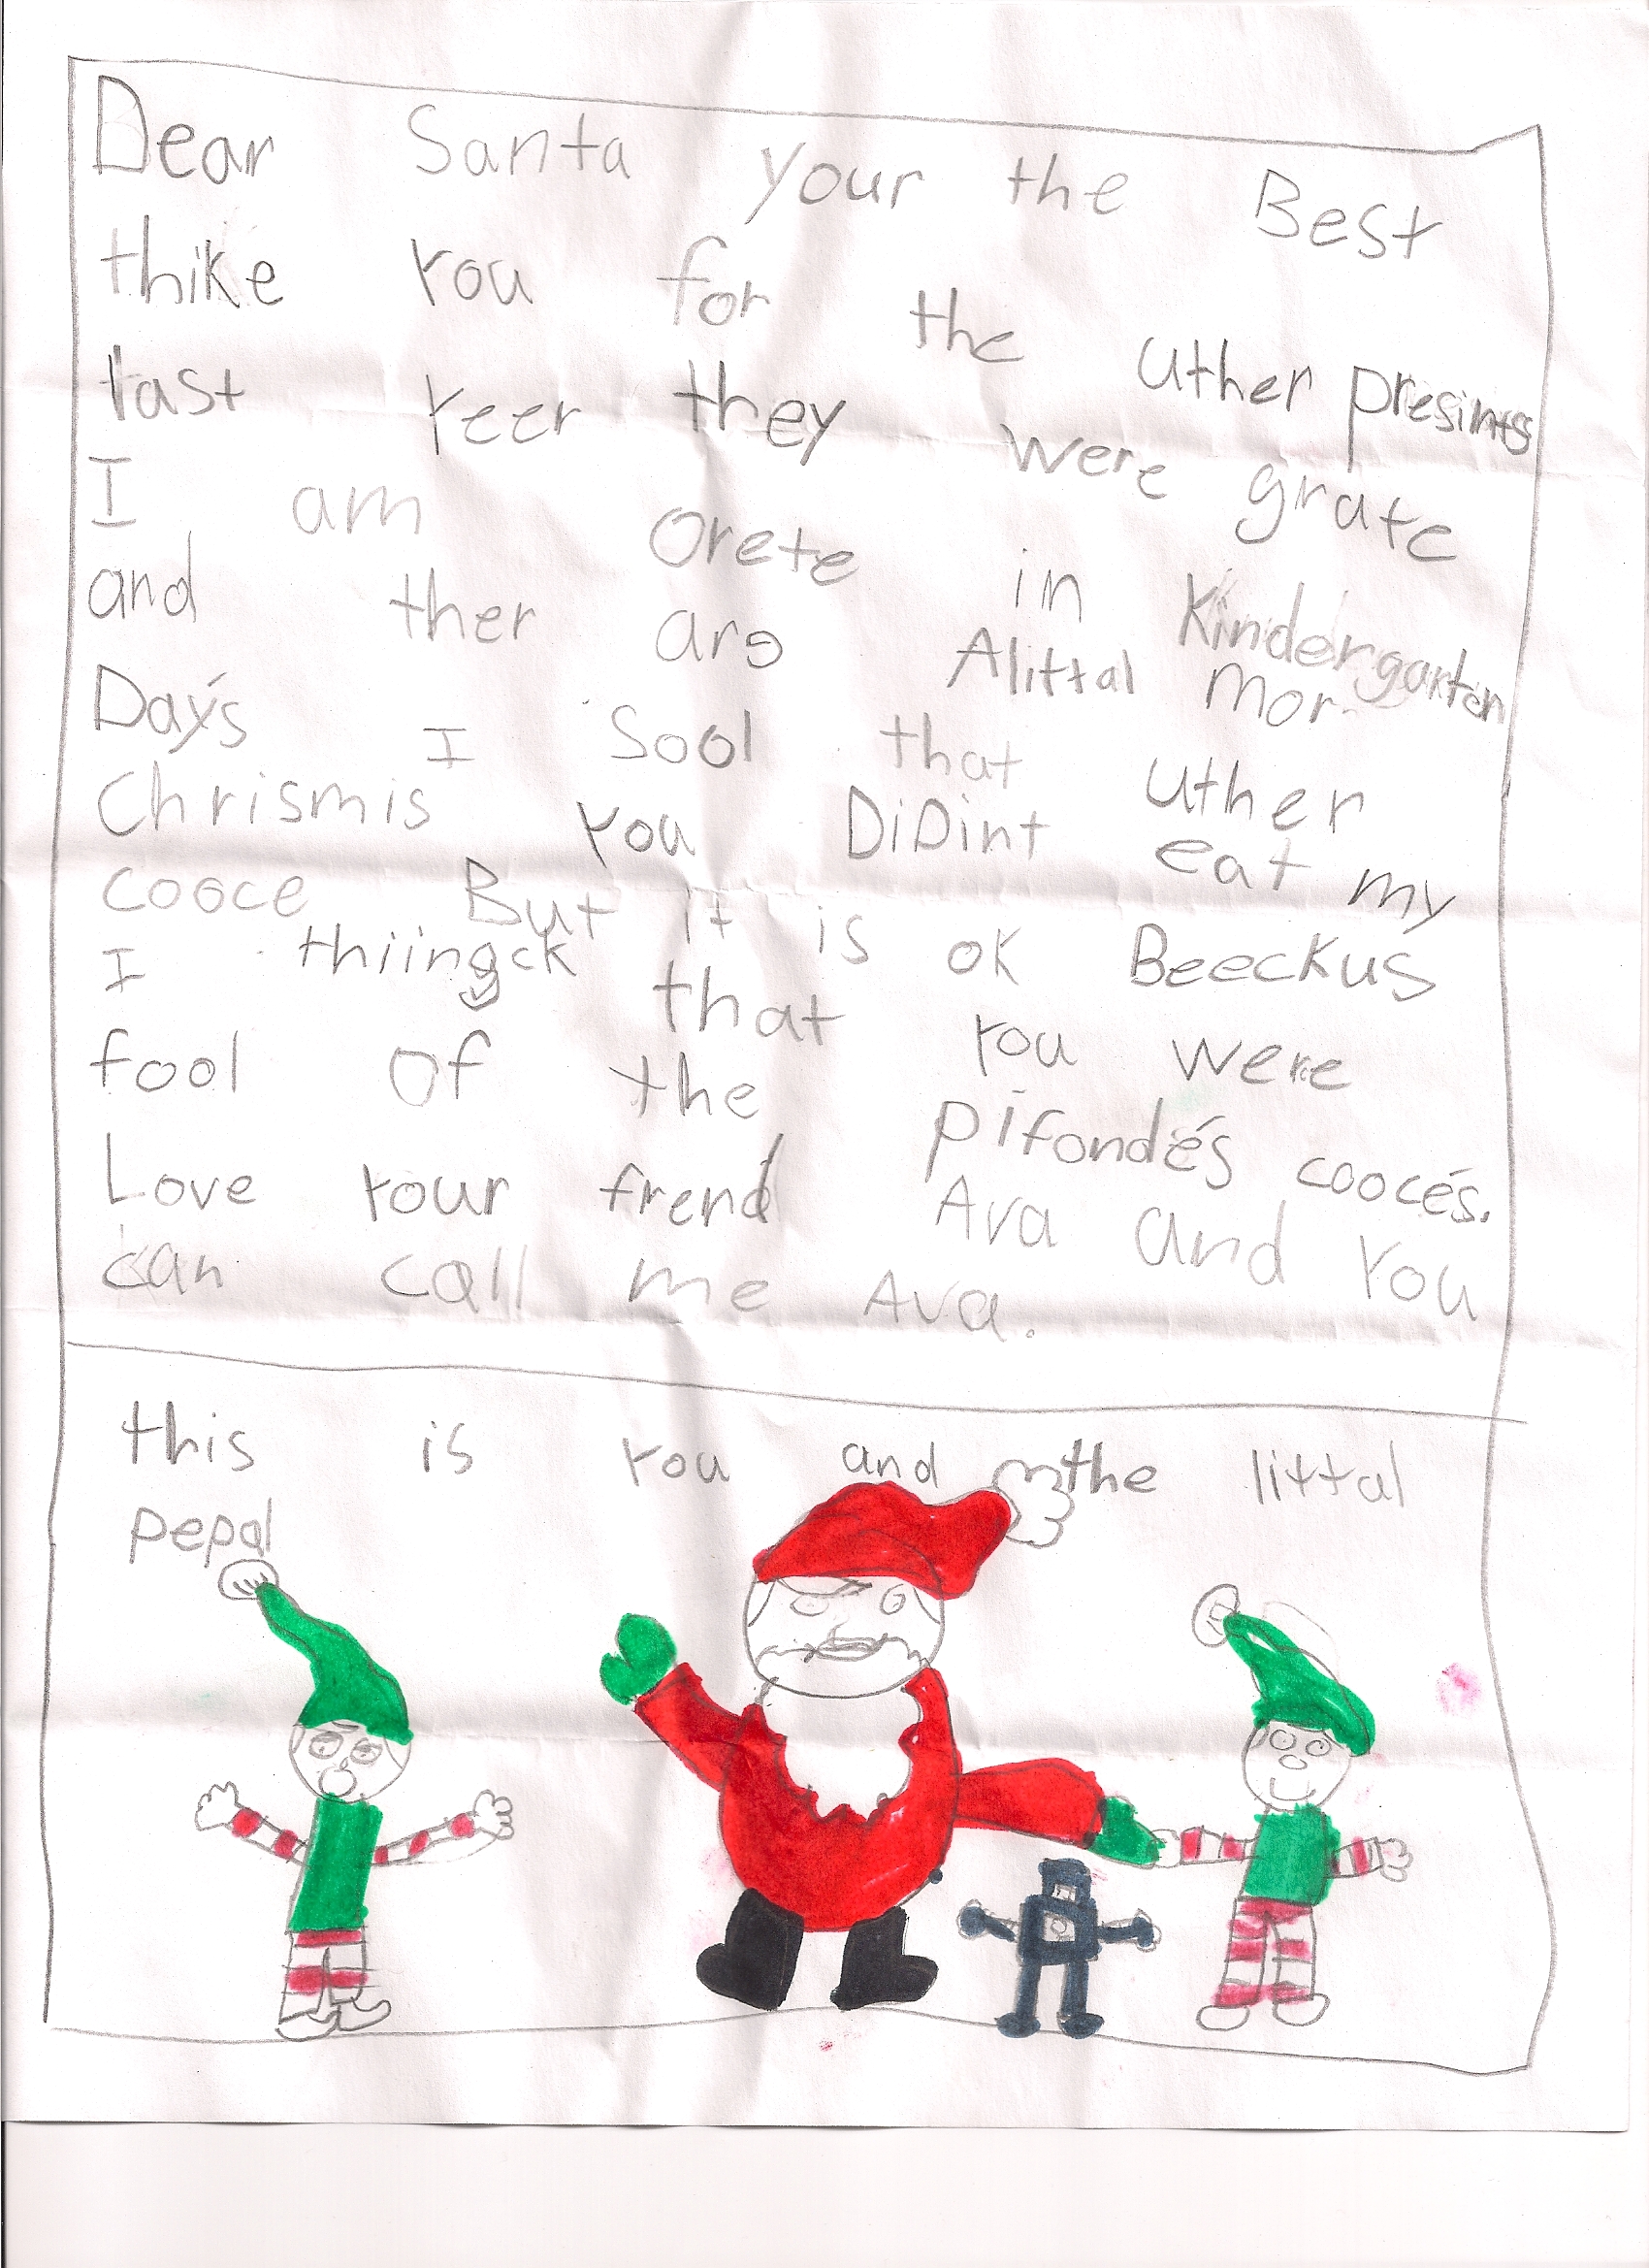 Dear Santa your the Best
thike you for the uther presints
last yeer they were grate
I am orete in Kindergarten
and ther are Alittal mor
Day's I Sool that uther
Chrismis you DiDint eat my
cooce But it is ok Beeckus
I thiingck that you were
fool of the pifondés coocés.
Love your frend Ava and you
can call me Ava.
this is you and the littal
pepal